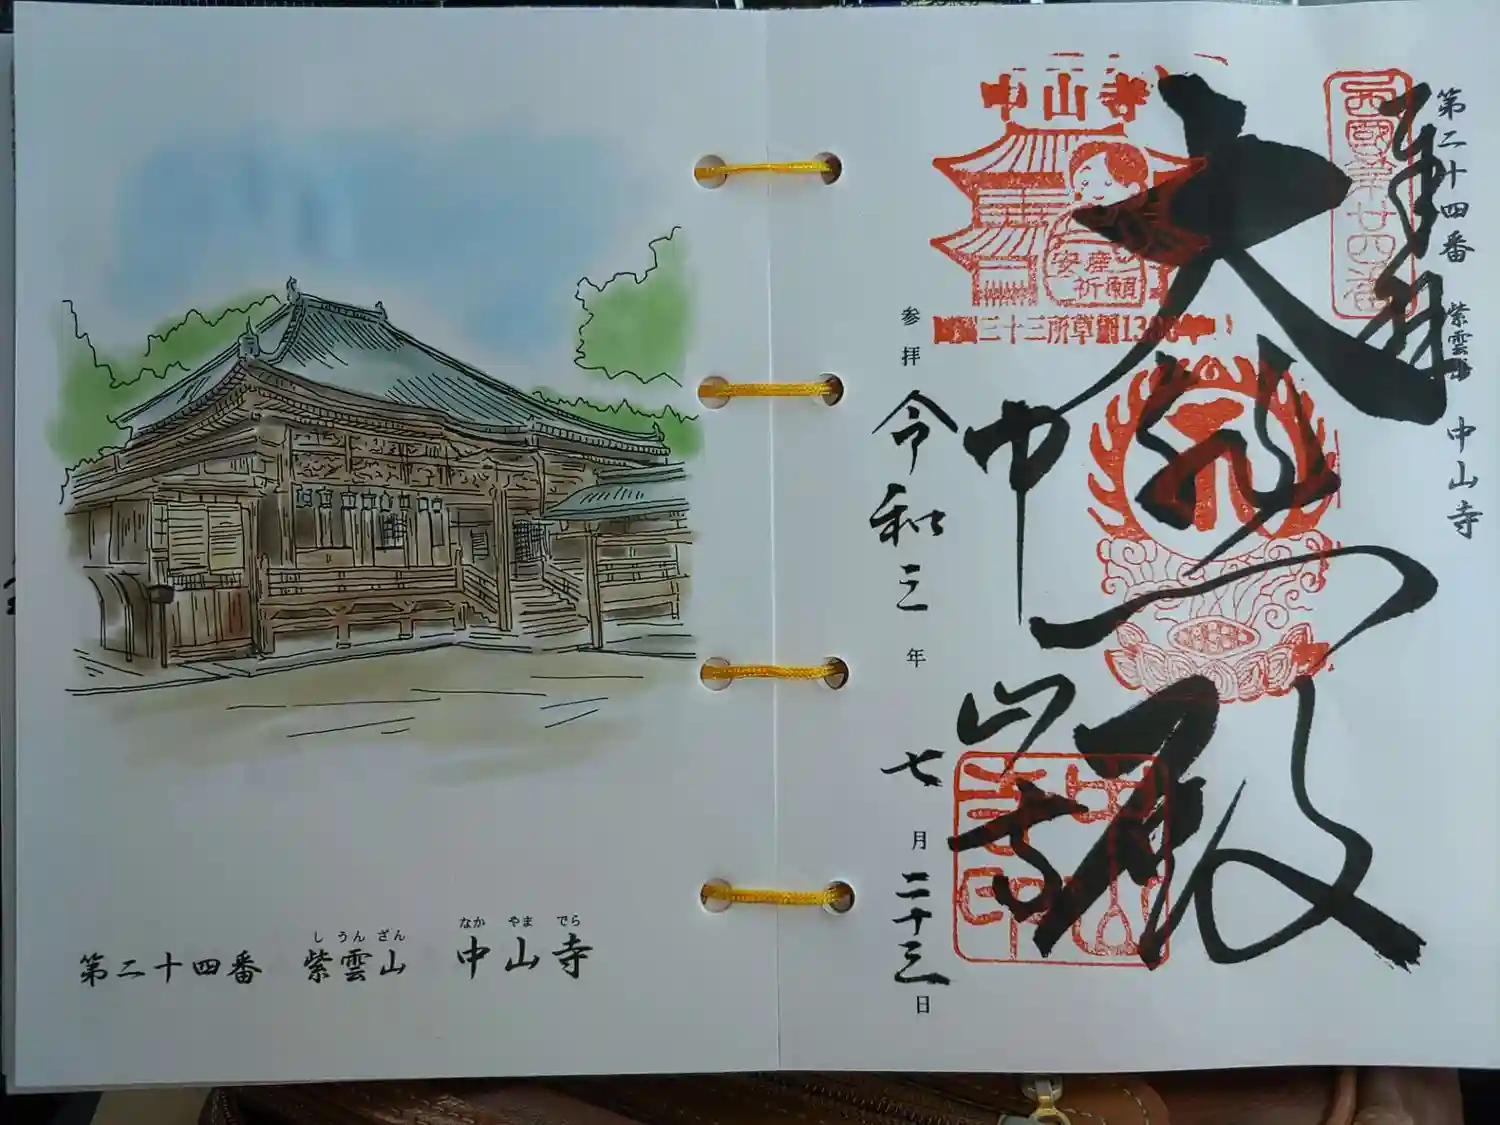 しうんざん
なかやまでら
第二十四番 紫雲山 中山寺
第二十四番 紫雲山 中山寺
奉拝
西國第廿四番
大悲殿
中山寺
中山寺
安産
祈願
三十三所草創1300年
参拝 令和三年七月二十三日
中山
寺印